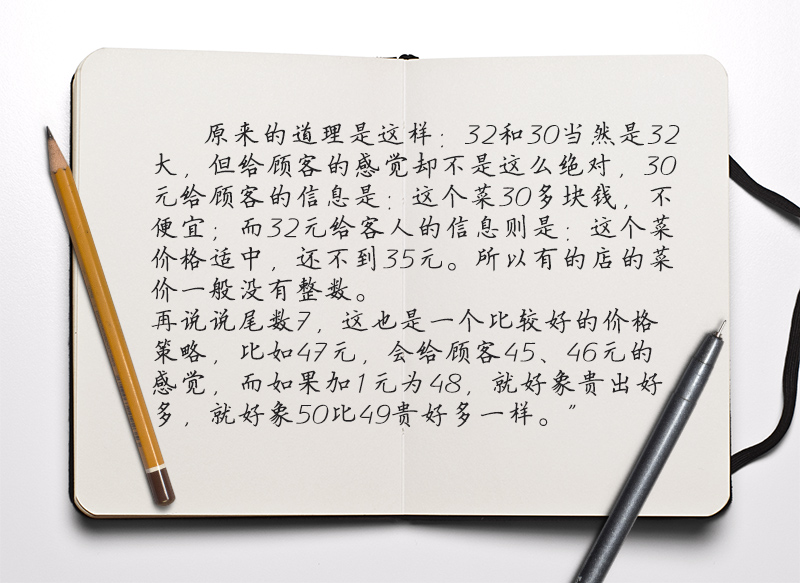 原来的道理是这样：32和30当然是32
大，但给顾客的感觉却不是这么绝对，30
元给顾客的信息是：这个菜30多块钱，不
便宜；而32元给客人的信息则是：这个菜
价格适中，还不到35元。所以有的店的菜
价一般没有整数。
再说说尾数7，这也是一个比较好的价格
策略，比如47元，会给顾客45、46元的
感觉，而如果加1元为48，就好象贵出好
多，就好象50比49贵好多一样。”